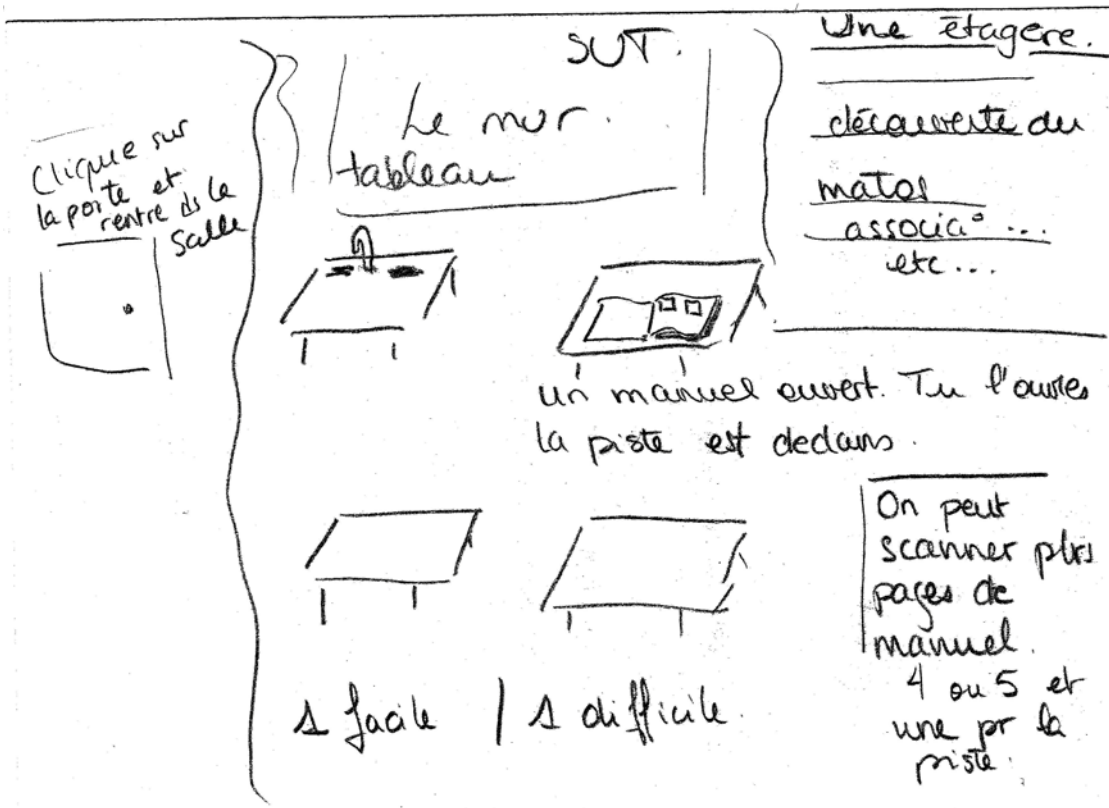 Clique sur
la porte et
rentre ds la
Salle
SVT.
Le mur.
tableau
Une étagère.
découverte du
matos
associa° ...
etc...
un manuel ouvert. Tu l'ouvres
la piste est dedans.
On peut
scanner plrs
pages de
manuel.
4 ou 5 et
une pr la
piste.
1 facile | 1 difficile.